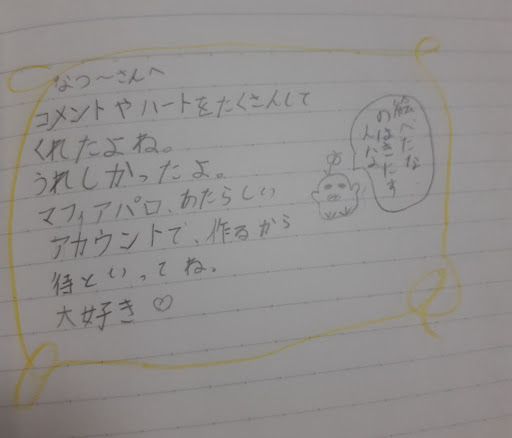 なつ〜さんへ
コメントやハートをたくさんして
くれたよね。
うれしかったよ。
マフィアパロ、あたらしい
アカウントで、作るから
待といってね。
大好き♡
絵へたな